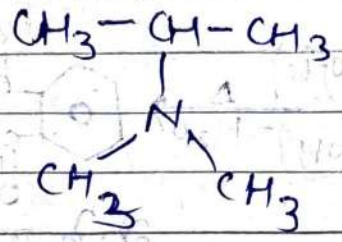 CH3-CH-CH3
N
CH3 CH3